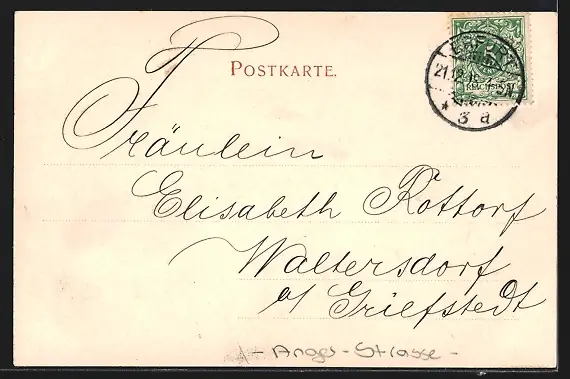 POSTKARTE.
ERFURT
5
21.12.
REICHSPOST
* 3 a
Fräulein
Elisabeth Rottorf
Waltersdorf
a/ Griefstedt
- Anger-Strasse -